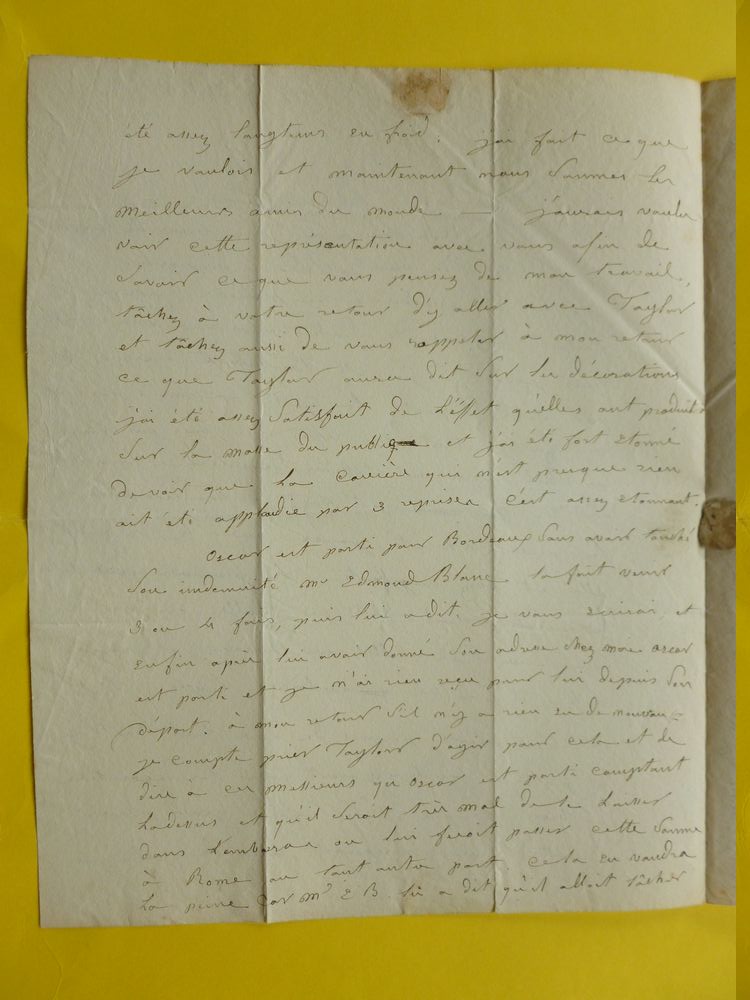 été assez longtems en froid. j'ai fait ce que
je voulois et maintenant nous sommes les
meilleurs amis du monde — j'aurais voulu
voir cette représentation avec vous afin de
savoir ce que vous pensez de mon travail,
tâchez à votre retour d'y aller avec Taylor
et tâchez aussi de vous rappeler à mon retour
ce que Taylor aura dit sur les décorations
j'ai été assez satisfait de l'éffet qu'elles ont produit
sur la masse du public et j'ai été fort étonné
de voir que la carière qui n'est presque rien
ait été applaudie par 3 reprises c'est assez étonnant.
Oscar est parti pour Bordeaux sans avoir touché
son indemnité mr Edmond Blanc la fait venir
3 ou 4 fois, puis lui a dit. je vous écrirai, et
enfin après lui avoir donné son adresse chez moi oscar
est parti et je n'ai rien reçu pour lui depuis son
départ. à mon retour s'il n'y a rien eu de nouveau
je compte prier Taylor d'agir pour cela et de
dire à ces messieurs qu oscar est parti comptant
ladessus et qu'il seroit très mal de le laisser
dans l'embaras on lui feroit passer cette somme
à Rome ou tout autre part. cela en vaudra
la peine car Mr E B. lui a dit qu'il alloit tâcher